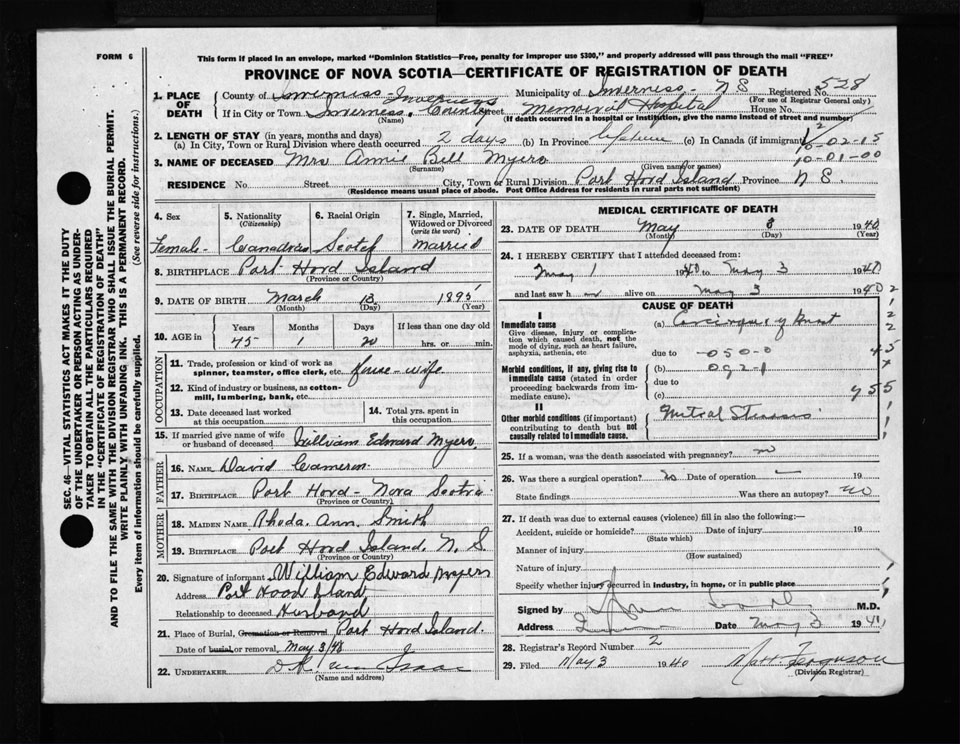 FORM 6
This form if placed in an envelope, marked "Dominion Statistics—Free, penalty for improper use $300," and properly addressed will pass through the mail "FREE"
PROVINCE OF NOVA SCOTIA—CERTIFICATE OF REGISTRATION OF DEATH
SEC. 46—VITAL STATISTICS ACT MAKES IT THE DUTY
OF THE UNDERTAKER OR PERSON ACTING AS UNDER-
TAKER TO OBTAIN ALL THE PARTICULARS REQUIRED
IN THE "CERTIFICATE OF REGISTRATION OF DEATH"
AND TO FILE THE SAME WITH THE DIVISION REGISTRAR WHO SHALL ISSUE THE BURIAL PERMIT.
WRITE PLAINLY WITH UNFADING INK. THIS IS A PERMANENT RECORD.
Every item of information should be carefully supplied. (See reverse side for instructions.)
1. PLACE OF DEATH
County of Inverness Municipality of Inverness- N S Registered No. 528
(For use of Registrar General only)
If in City or Town Inverness, County Street Memorial Hospital House No.
(Name) (If death occurred in a hospital or institution, give the name instead of street and number)
2. LENGTH OF STAY (in years, months and days)
(a) In City, Town or Rural Division where death occurred 2 days (b) In Province lifetime (c) In Canada (if immigrant)
10-02-15
10-01-00
3. NAME OF DECEASED Mrs Annie Bell Myers
(Surname) (Given name or names)
RESIDENCE No. Street City, Town or Rural Division Port Hood Island Province N S.
(Residence means usual place of abode. Post Office Address for residents in rural parts not sufficient)
4. Sex Female
5. Nationality (Citizenship) Canadian
6. Racial Origin Scotch
7. Single, Married, Widowed or Divorced (write the word) Married
8. BIRTHPLACE Port Hood Island
(Province or Country)
9. DATE OF BIRTH March 13 1895
(Month) (Day) (Year)
10. AGE in Years Months Days If less than one day old
45 1 20 hrs. or min.
OCCUPATION
11. Trade, profession or kind of work as spinner, teamster, office clerk, etc. House-wife
12. Kind of industry or business, as cotton-mill, lumbering, bank, etc.
13. Date deceased last worked at this occupation
14. Total yrs. spent in this occupation
15. If married give name of wife or husband of deceased William Edward Myers
FATHER
16. NAME David Cameron
17. BIRTHPLACE Port Hood- Nova Scotia
(Province or Country)
MOTHER
18. MAIDEN NAME Rhoda Ann Smith
19. BIRTHPLACE Port Hood Island. N. S.
(Province or Country)
20. Signature of informant William Edward Myers
Address Port Hood Island
Relationship to deceased Husband
21. Place of Burial, Cremation or Removal Port Hood Island.
Date of burial or removal, May 3/40
22. UNDERTAKER Isaac
(Name and address)
MEDICAL CERTIFICATE OF DEATH
23. DATE OF DEATH May 3 1940
(Month) (Day) (Year)
24. I HEREBY CERTIFY that I attended deceased from:
May 1 1940 to May 3 1940
and last saw h alive on May 3 1940
CAUSE OF DEATH
I
Immediate cause
Give disease, injury or complication which caused death, not the mode of dying, such as heart failure, asphyxia, asthenia, etc
(a) Carcinoma of Breast
due to -050-0
Morbid conditions, if any, giving rise to immediate cause (stated in order proceeding backwards from immediate cause).
(b) 092-1
due to
(c)
II
Other morbid conditions (if important) contributing to death but not causally related to immediate cause.
Mitral Stenosis
25. If a woman, was the death associated with pregnancy? no
26. Was there a surgical operation? no Date of operation — 19
State findings Was there an autopsy? no
27. If death was due to external causes (violence) fill in also the following:—
Accident, suicide or homicide? Date of injury 19
(State which)
Manner of injury
(How sustained)
Nature of injury
Specify whether injury occurred in industry, in home, or in public place
Signed by M.D.
Address Date May 3 194
28. Registrar's Record Number 2
29. Filed May 3 1940 Matt. Ferguson
(Division Registrar)